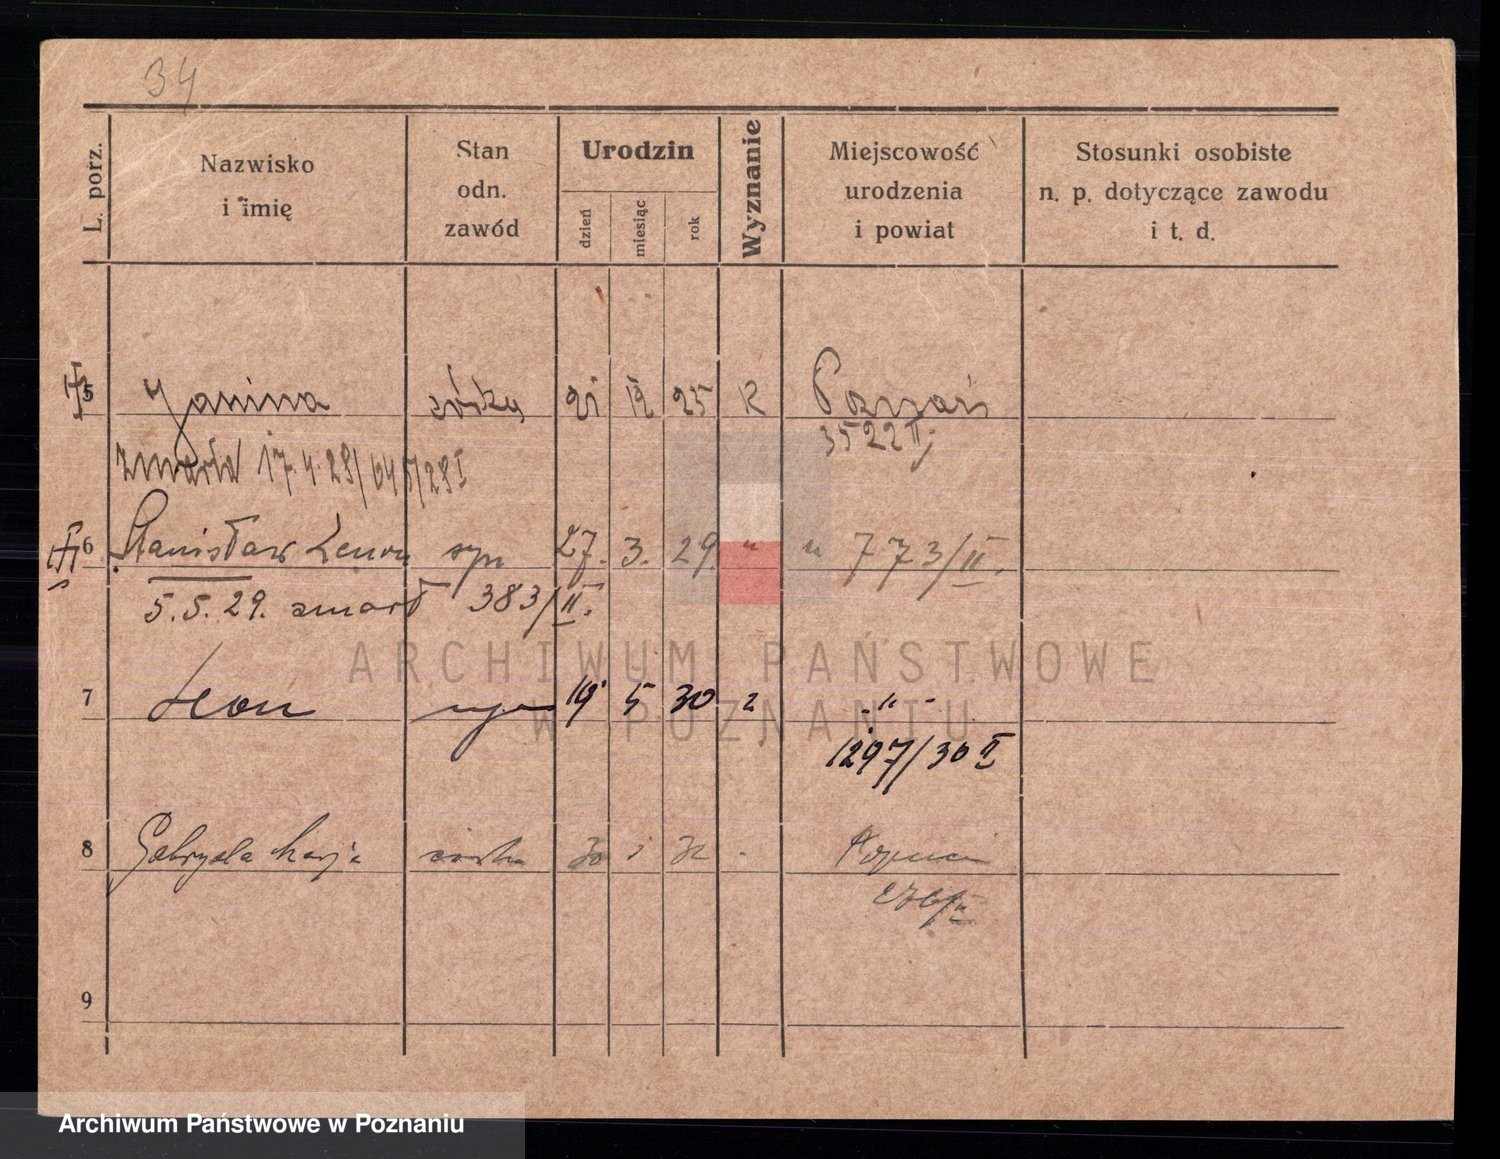 34
L. porz.
Nazwisko
i imię
Stan
odn.
zawód
Urodzin
dzień
miesiąc
rok
Wyznanie
Miejscowość
urodzenia
i powiat
Stosunki osobiste
n. p. dotyczące zawodu
i t. d.
5 Janina córka 21 12 25 K Poznań
3522 II
zmarła 17.4.28/
6 Stanisław Zenon syn 27. 3. 29. " " 773/II.
5.5.29. zmarł 383/II.
7 Leon syn 19 5 30 " - " -
1297/30 II
8 Gabryela Marja córka 30 1 32
9
ARCHIWUM PAŃSTWOWE
W POZNANIU
Archiwum Państwowe w Poznaniu